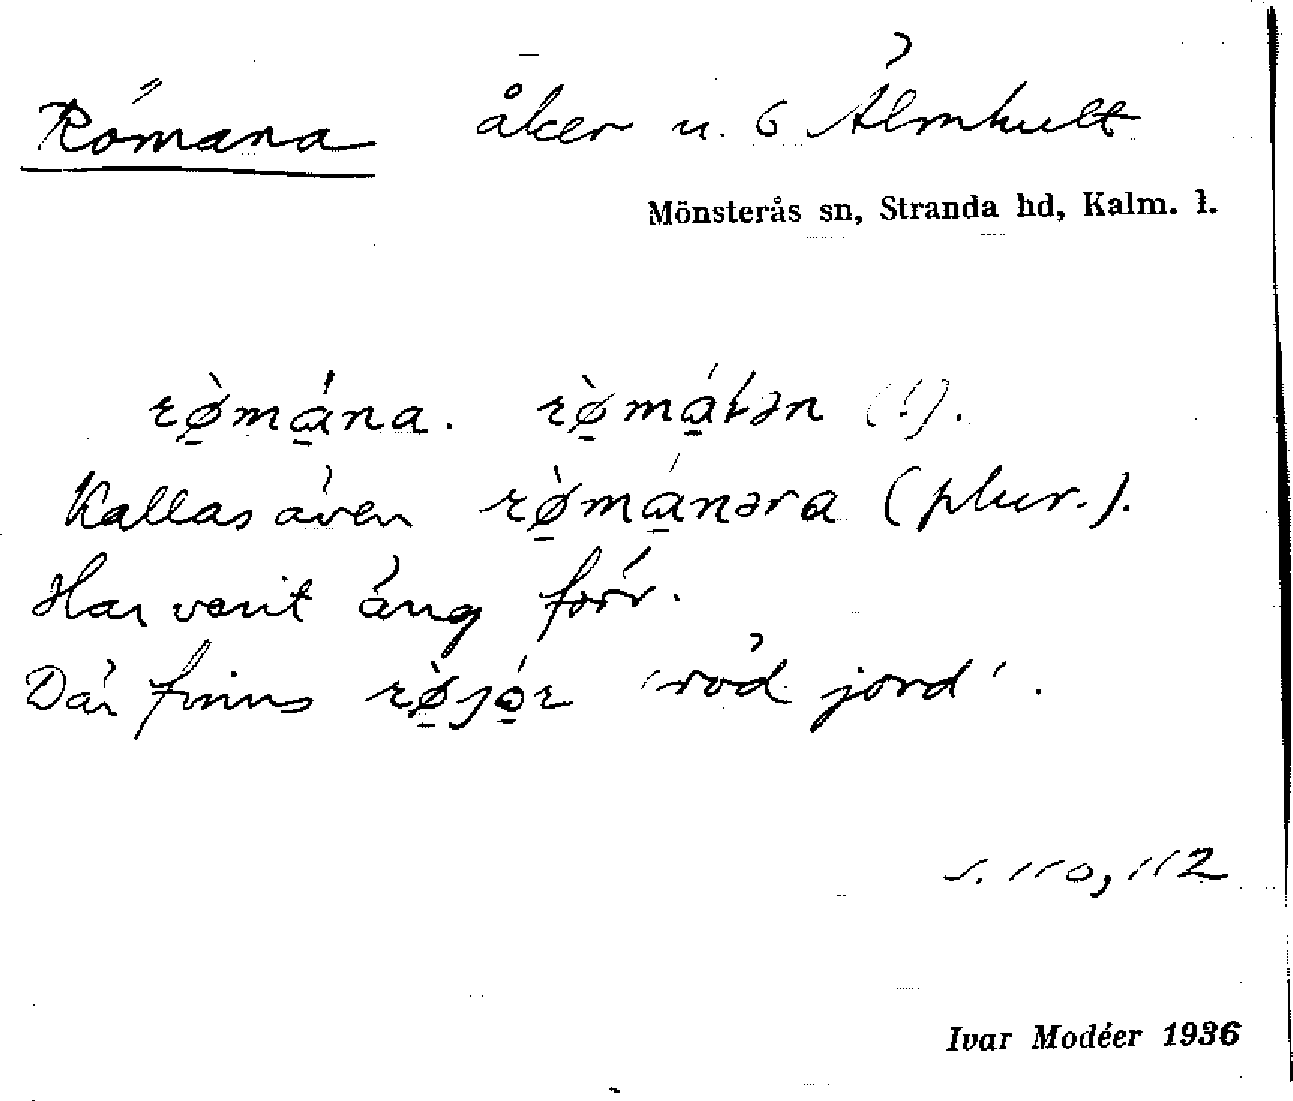 Römana åker u. 6 Älmhult
Mönsterås sn, Stranda hd, Kalm. l.
rø̀mána. rø̀mátən (!).
Kallas även rø̀mánəra (plur.).
Har varit äng förr.
Där finns rø̀jǿr 'röd jord'.
s. 110, 112
Ivar Modéer 1936